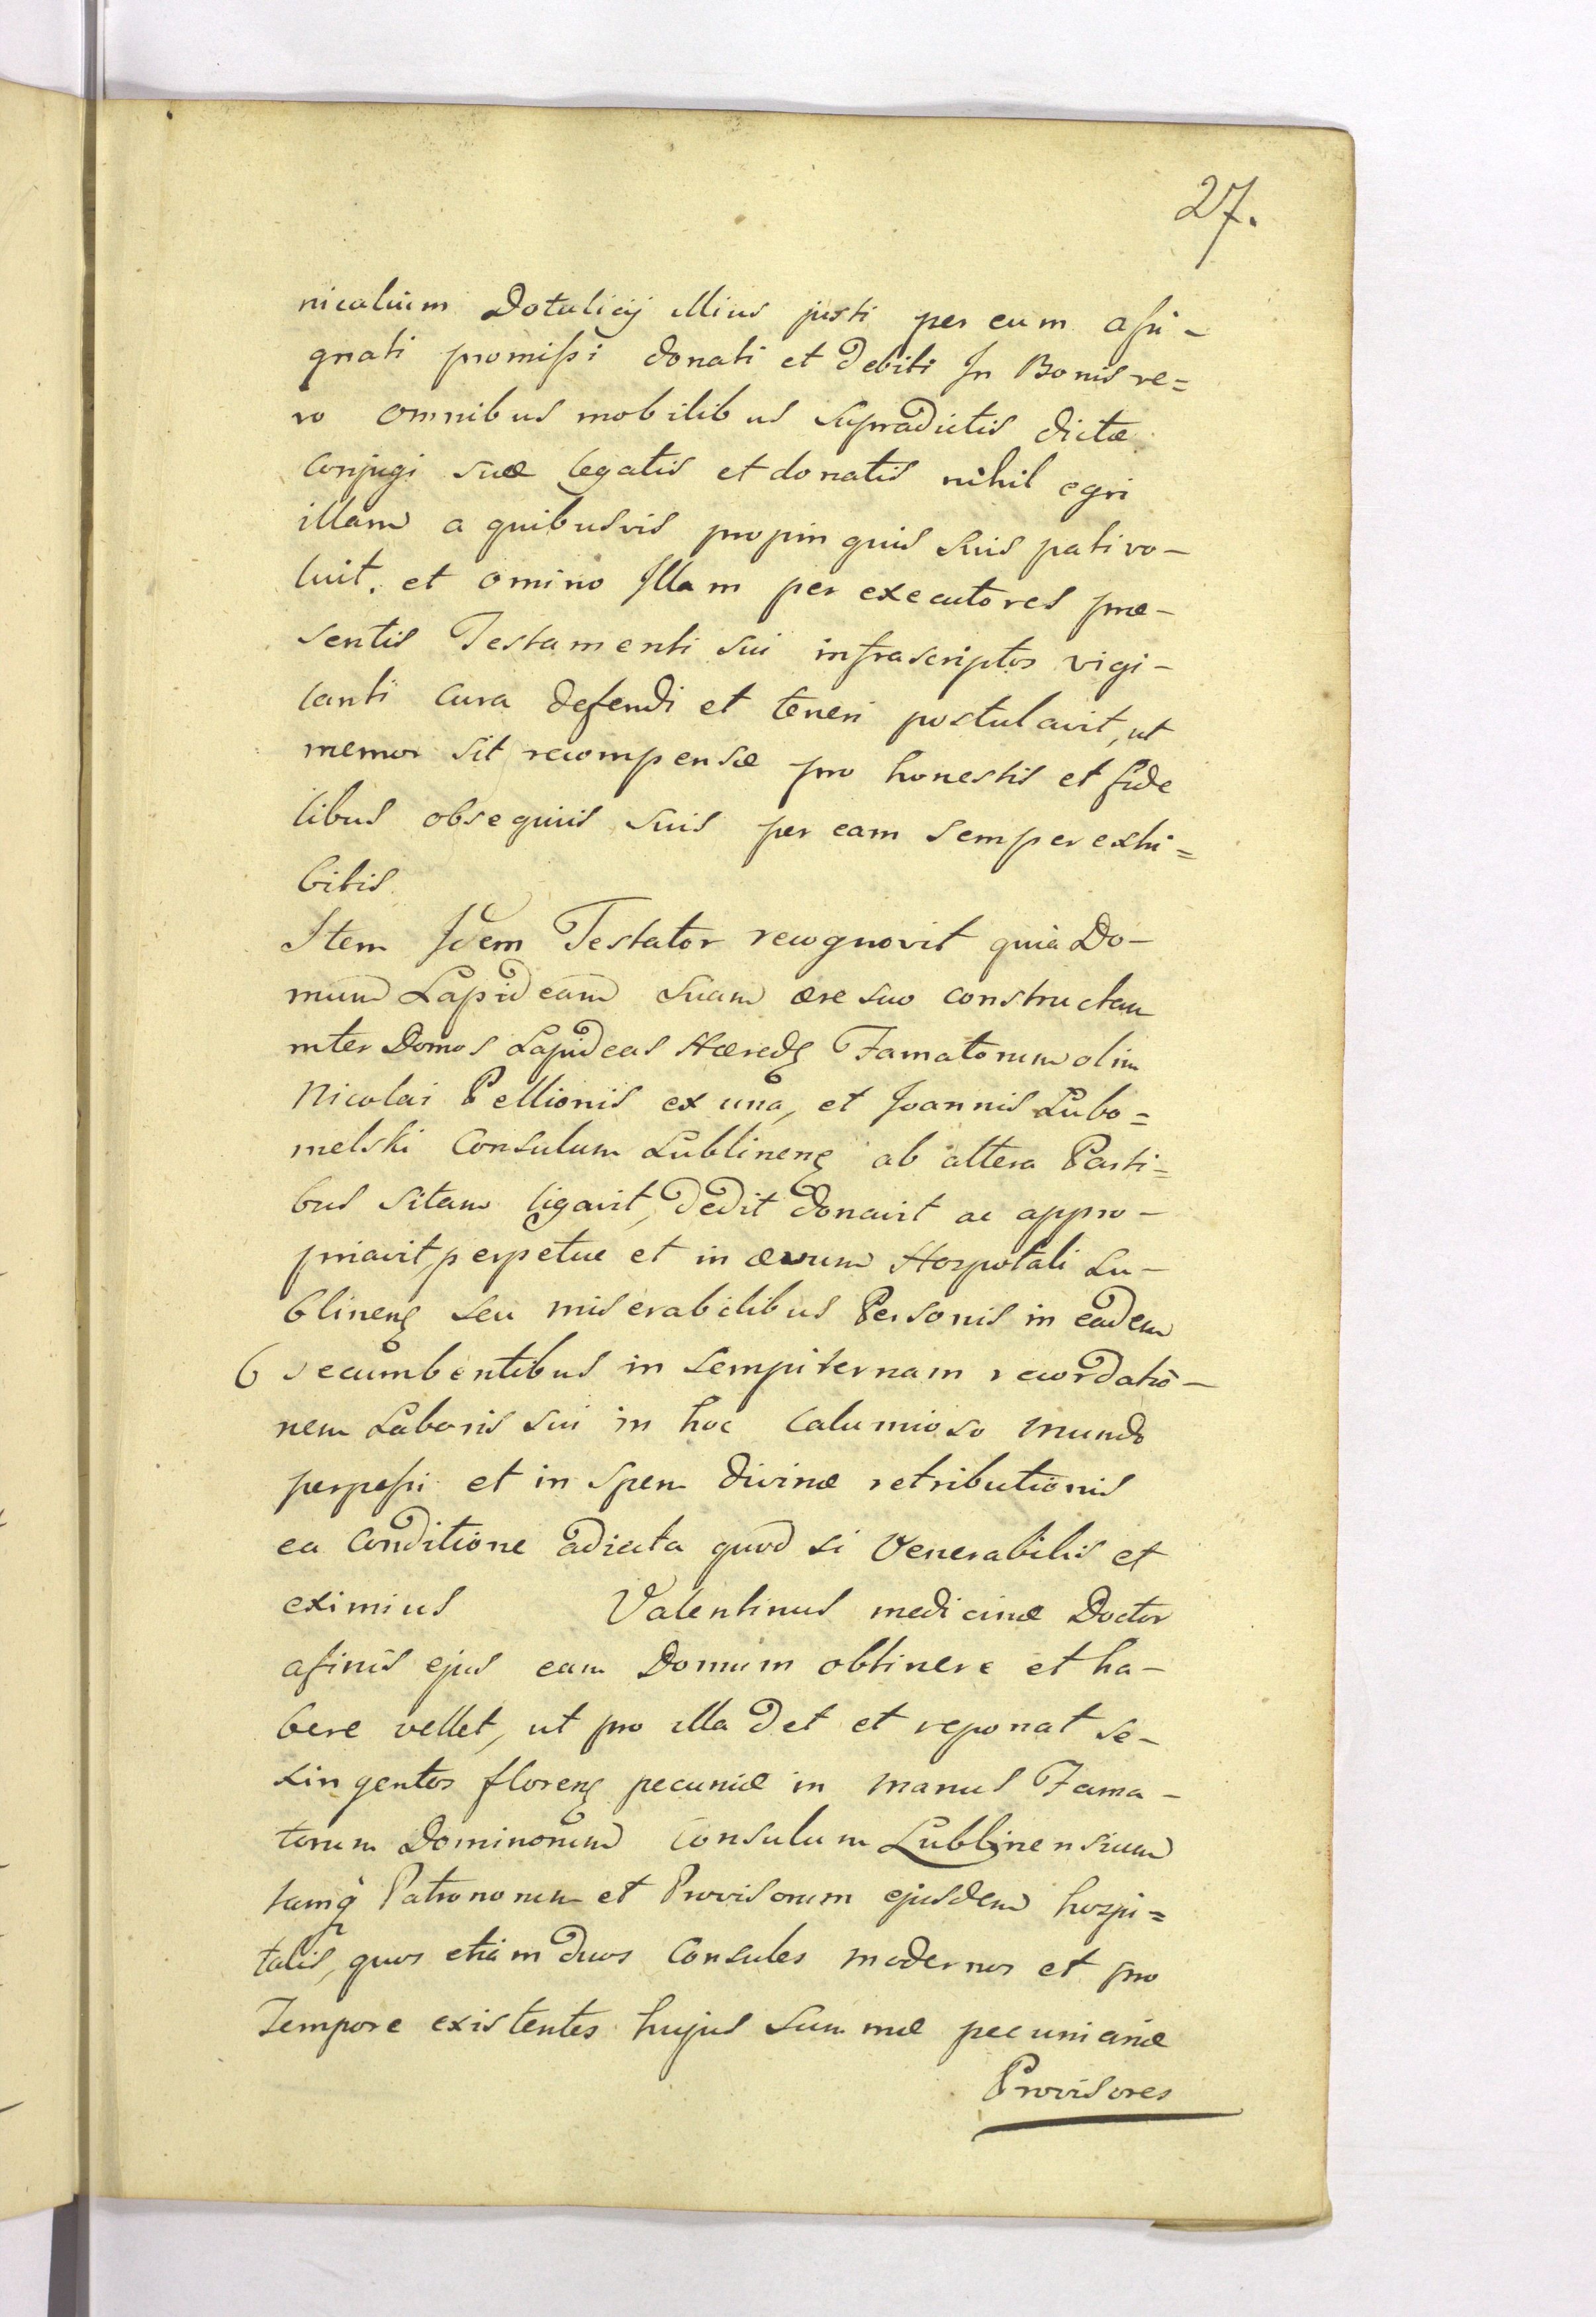 27.
nicalium Dotalicij illius justi per eum assi-
gnati promissi donati et debiti In Bonis ve=
ro omnibus mobilibus supradictis dictæ
Conjugi suæ legatis et donatis nihil egri
illam a quibusvis propinquis suis pati vo-
luit. et omino Illam per executores præ-
sentis Testamenti sui infrascriptos vigi-
lanti cura defendi et teneri postulavit, ut
memor sit recompensæ pro honestis et fide
libus obsequiis suis per eam semper exhi=
bitis
Item Idem Testator recognovit quia Do-
mum Lapideam suam ære suo constructam
inter Domos Lapideas Hæredę Famatorum olim
Nicolai Pellionis ex una, et Joannis Lubo=
melski Consulum Lublinenę ab altera Parti=
bus sitam ligavit, dedit donavit ac appro-
priavit perpetue et in ævum Hospotali Lu-
blinenę seu miserabilibus Personis in eadem
6 secumbentibus in sempiternam recordatiō-
nem Laboris sui in hoc calumioso mundo
perpessi et in spem divinæ retributionis
ea Conditione adiecta quod si Venerabilis et
eximius Valentinus medicinæ Doctor
afinis ejus eam Domum obtinere et ha-
bere vellet, ut pro illa det et reponat se-
xingentos florenę pecuniæ in manus Fama-
torum Dominorum Consulum Lublinensium
tamq̃ Patronorum et Provisorum ejusdem hospi=
talis, quos etiam duos Consules modernos et pro
Tempore existentes hujus summæ pecuniariæ
Provisores